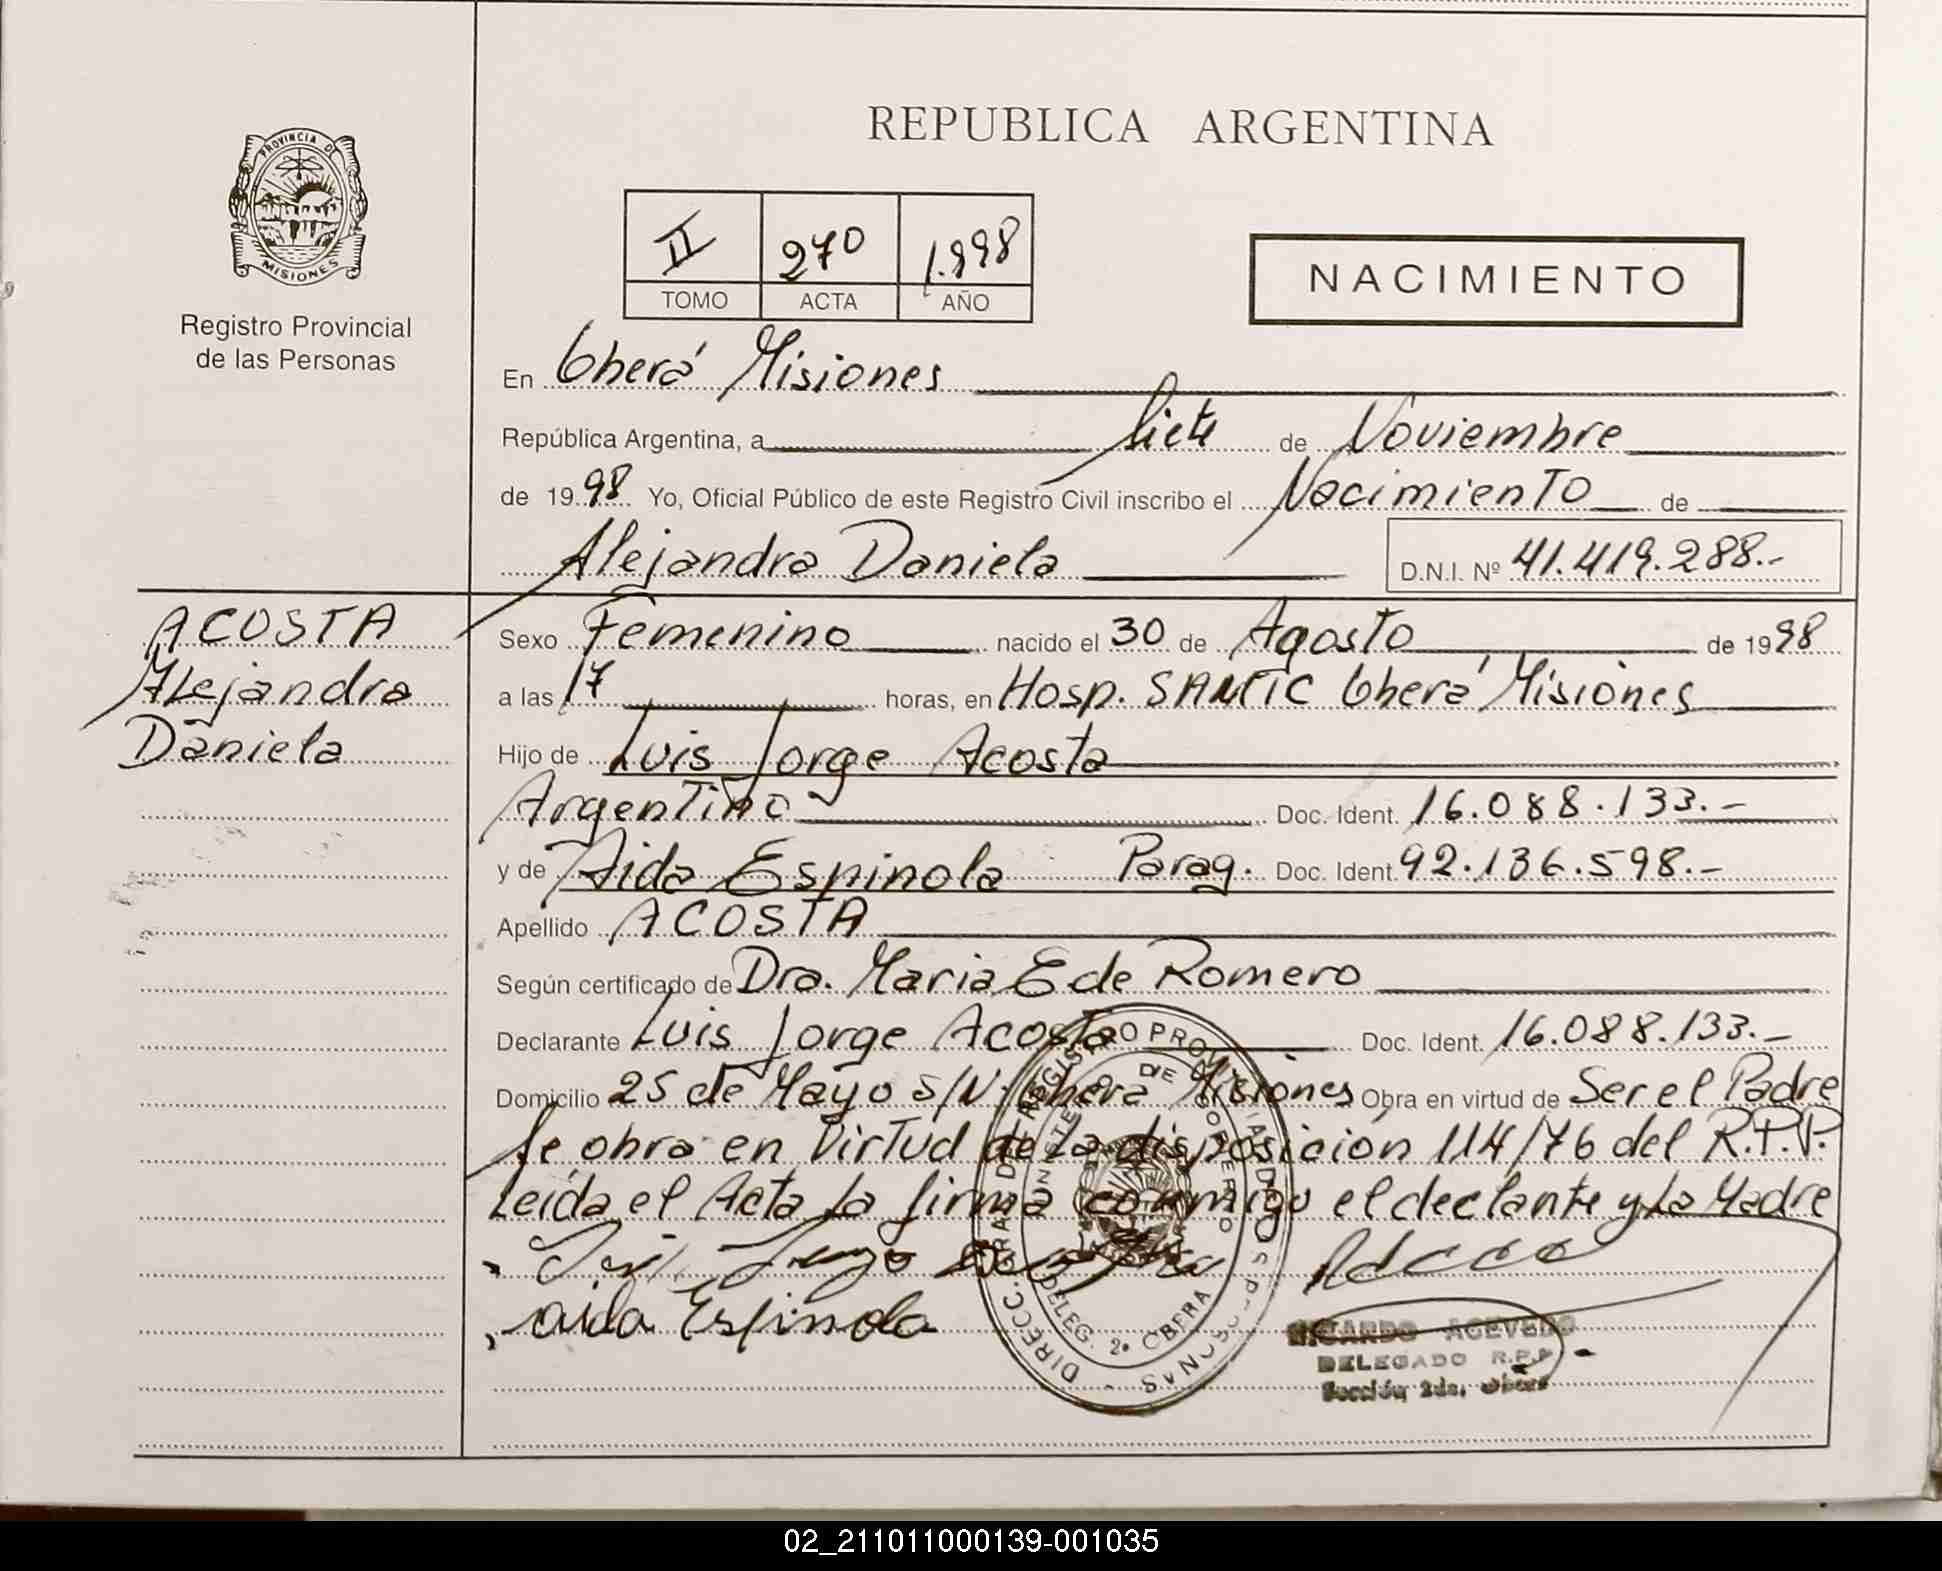 REPUBLICA ARGENTINA
PROVINCIA DE MISIONES
Registro Provincial
de las Personas
II 270 1.998
TOMO ACTA AÑO
NACIMIENTO
En Oberá Misiones
República Argentina, a Siete de Noviembre
de 1998 Yo, Oficial Público de este Registro Civil inscribo el Nacimiento de
Alejandra Daniela D.N.I. Nº 41.419.288.-
ACOSTA
Alejandra
Daniela
Sexo Femenino nacido el 30 de Agosto de 1998
a las 17 horas, en Hosp. SAMIC Oberá Misiones
Hijo de Luis Jorge Acosta
Argentino Doc. Ident. 16.088.133.-
y de Aida Espinola Parag. Doc. Ident. 92.136.598.-
Apellido ACOSTA
Según certificado de Dra. Maria E de Romero
Declarante Luis Jorge Acosta Doc. Ident. 16.088.133.-
Domicilio 25 de Mayo S/N. Oberá Misiones Obra en virtud de Ser el Padre
Se obra en Virtud de la disposición 114/76 del R.P.P.
Leída el Acta la firma conmigo el declante y la Madre
aida Espinola
DIRECC. GRAL. DE REGISTRO PROVINCIAL DE LAS PERSONAS
MINISTERIO DE GOBIERNO
DELEG. 2ª OBERA
RICARDO ACEVEDO
DELEGADO R.P.P.
Sección 2da. Oberá
02_211011000139-001035